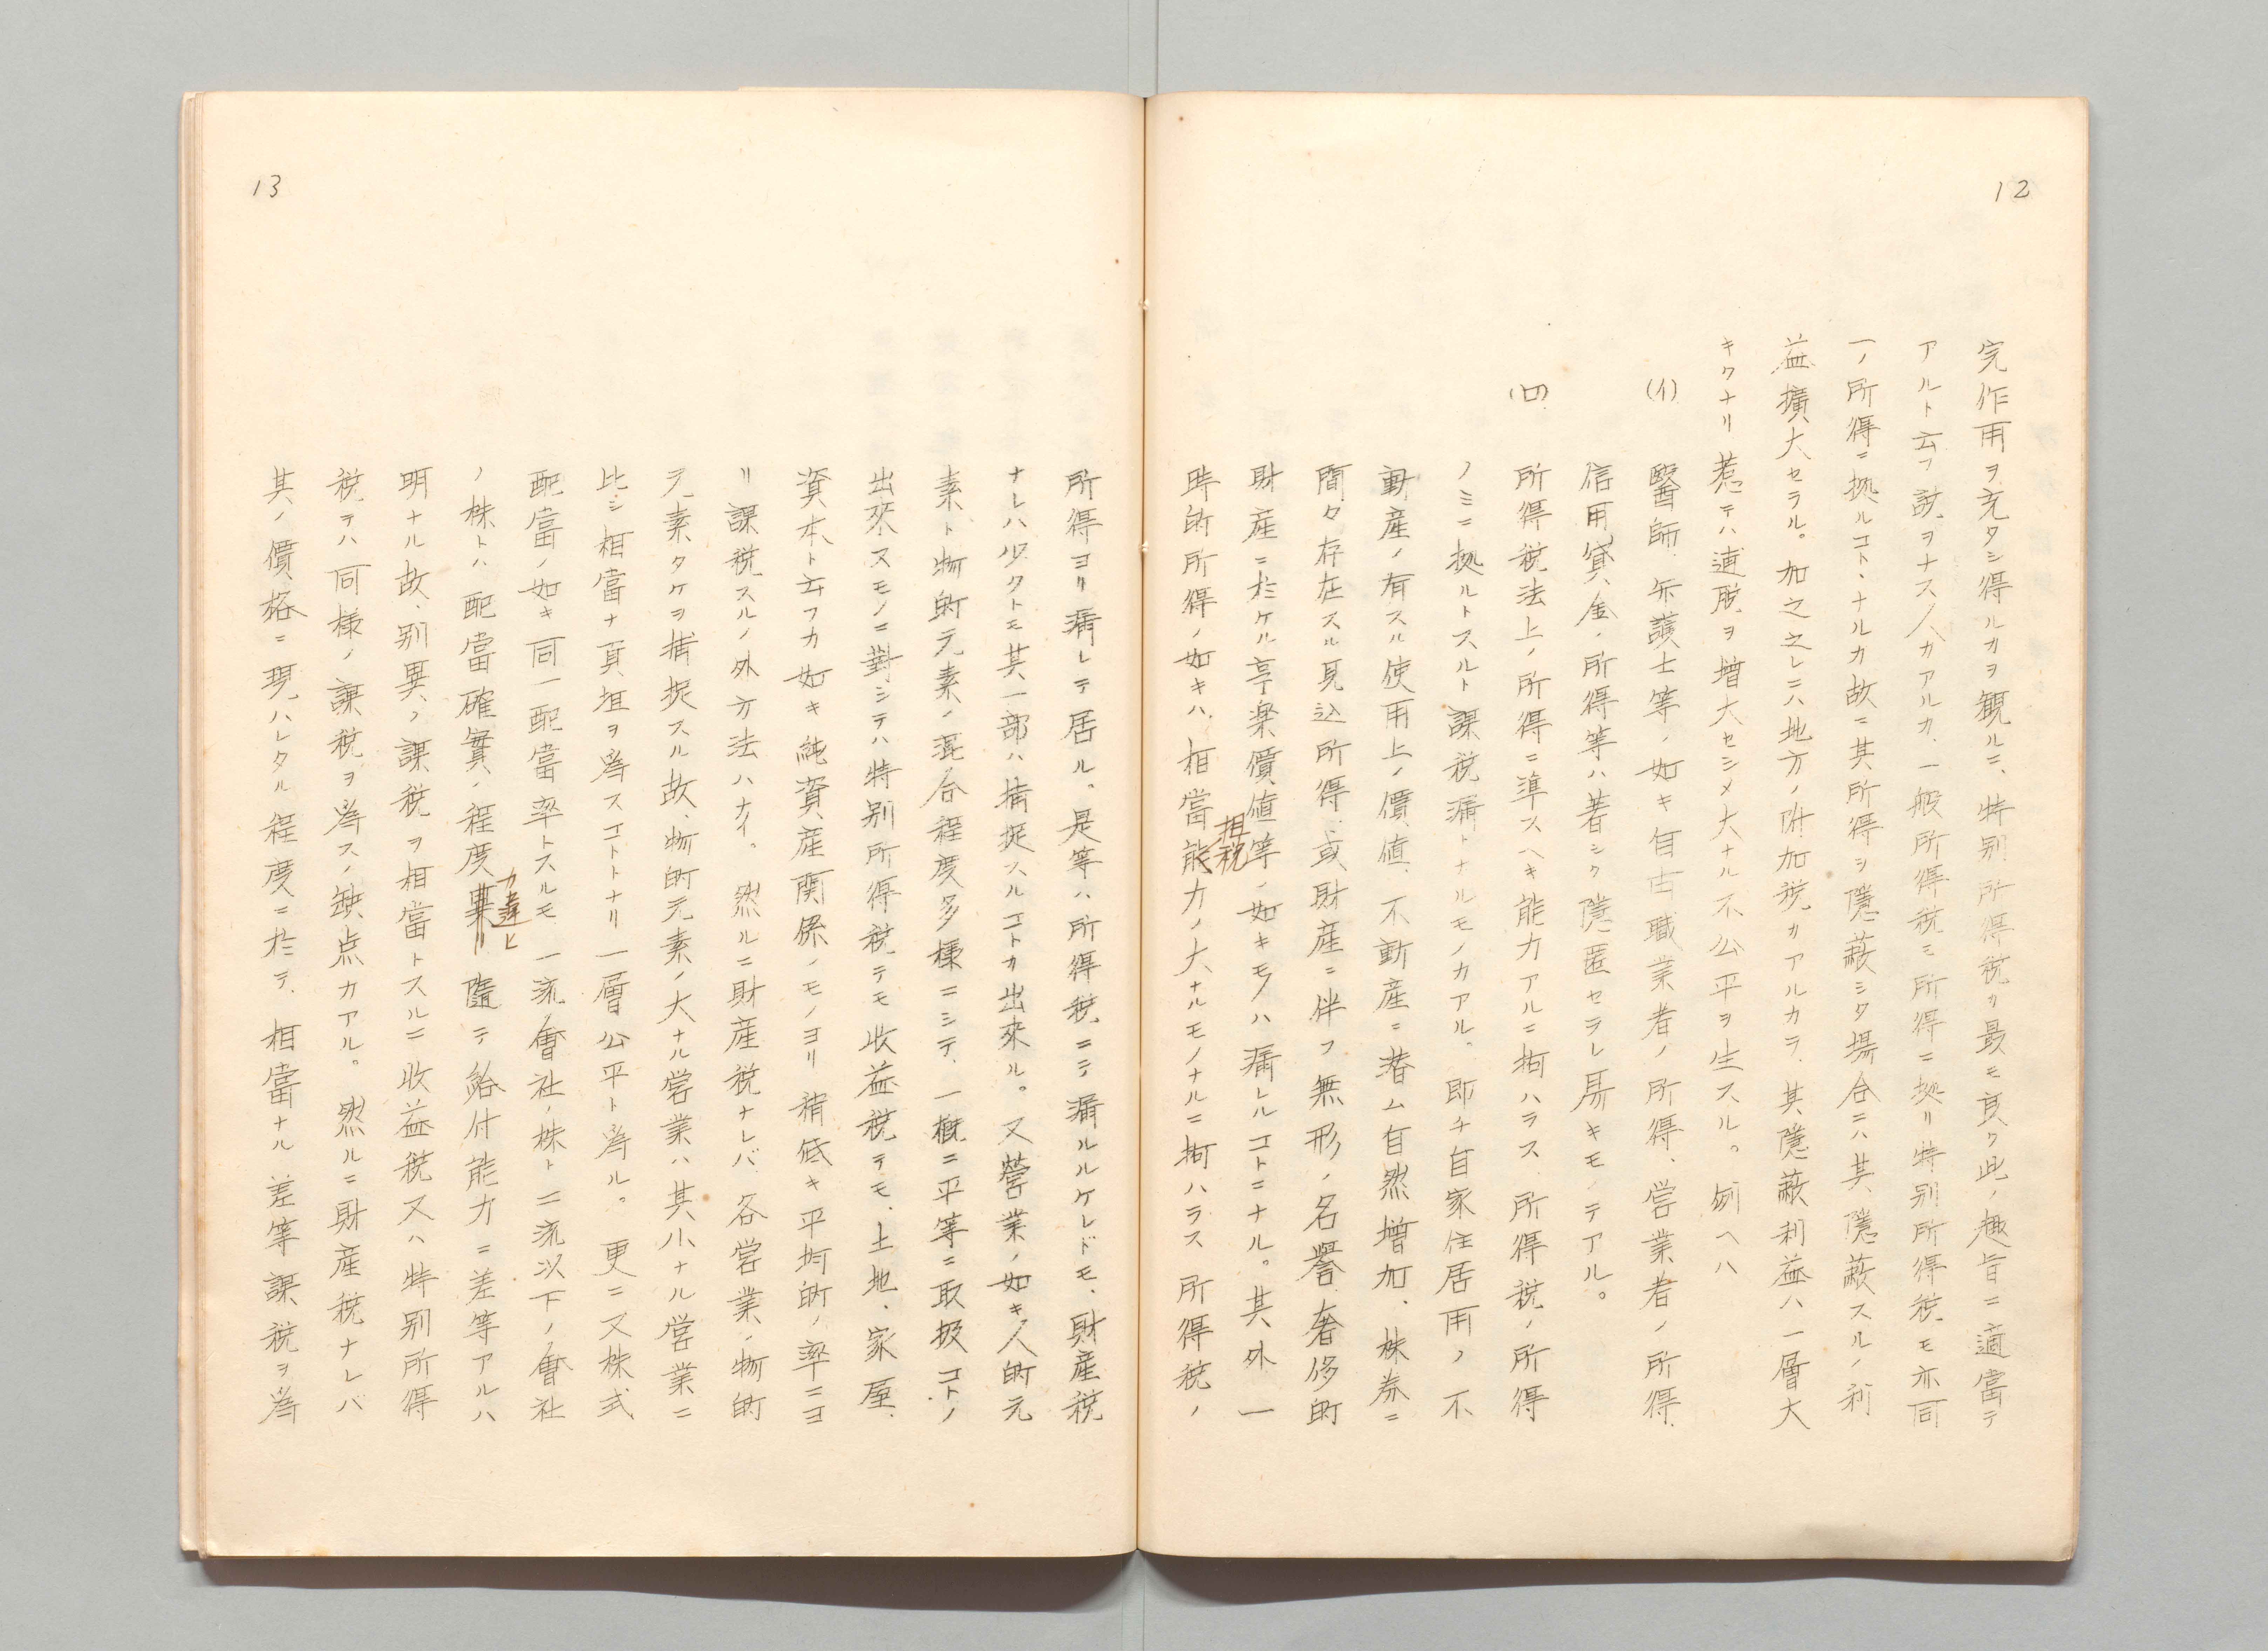 12
完作用ヲ充タシ得ルカヲ観ルニ、特別所得税カ最モ良ク此ノ趣旨ニ適當テ
アルト云フ説ヲナス人カアルカ、一般所得税モ所得ニ拠リ特別所得税モ亦同
一ノ所得ニ拠ルコトヽナルカ故ニ其所得ヲ隠蔽シタ場合ニハ其ノ隠蔽スルノ利
益擴大セラル。加之之レニハ地方ノ附加税カアルカラ、其隠蔽利益ハ一層大
キクナリ惹テハ逋脱ヲ増大セシメ大ナル不公平ヲ生スル。例ヘハ
(イ) 醫師、弁護士等ノ如キ自由職業者ノ所得、営業者ノ所得、
信用貸金ノ所得等ハ著シク隠匿セラレ易キモノテアル。
(ロ) 所得税法上ノ所得ニ準スヘキ能力アルニ拘ハラス所得税ノ所得
ノミニ拠ルトスルト課税漏トナルモノカアル。即チ自家住居用ノ不
動産ノ有スル使用上ノ價値、不動産ニ潜ム自然増加、株券ニ
間々存在スル見込所得、或財産ニ伴フ無形ノ名譽、奢侈的
財産ニ於ケル享楽價値等ノ如キモノハ漏レルコトニナル。其外一
時的所得ノ如キハ、相當担税能力ノ大ナルモノナルニ拘ハラス所得税ノ
13
所得ヨリ漏レテ居ル。是等ハ所得税ニテ漏ルルケレドモ、財産税
ナレハ少クトモ其一部ハ捕捉スルコトカ出來ル。又營業ノ如キ人的元
素ト物的元素ノ混合程度多様ニシテ、一概ニ平等ニ取扱コトノ
出來ヌモノニ對シテハ特別所得税テモ收益税テモ、土地、家屋、
資本ト云フカ如キ純資産関係ノモノヨリ稍低キ平均的ノ率ニヨ
リ課税スルノ外方法ハナイ。然ルニ財産税ナレバ各営業ノ物的
元素タケヲ捕捉スル故、物的元素ノ大ナル営業ハ其小ナル営業ニ
比シ相當ナ負担ヲ為スコトトナリ一層公平ト為ル。更ニ又株式
配當ノ如キ同一配當率トスルモ一流ノ會社ノ株ト二流以下ノ會社
ノ株トハ配當確實ノ程度カ違ヒ隨テ給付能力ニ差等アルハ
明ナル故、別異ノ課税ヲ相當トスルニ收益税又ハ特別所得
税テハ同様ノ課税ヲ為スノ缺点カアル。然ルニ財産税ナレバ
其ノ價格ニ現ハレタル程度ニ於テ、相當ナル差等課税ヲ為